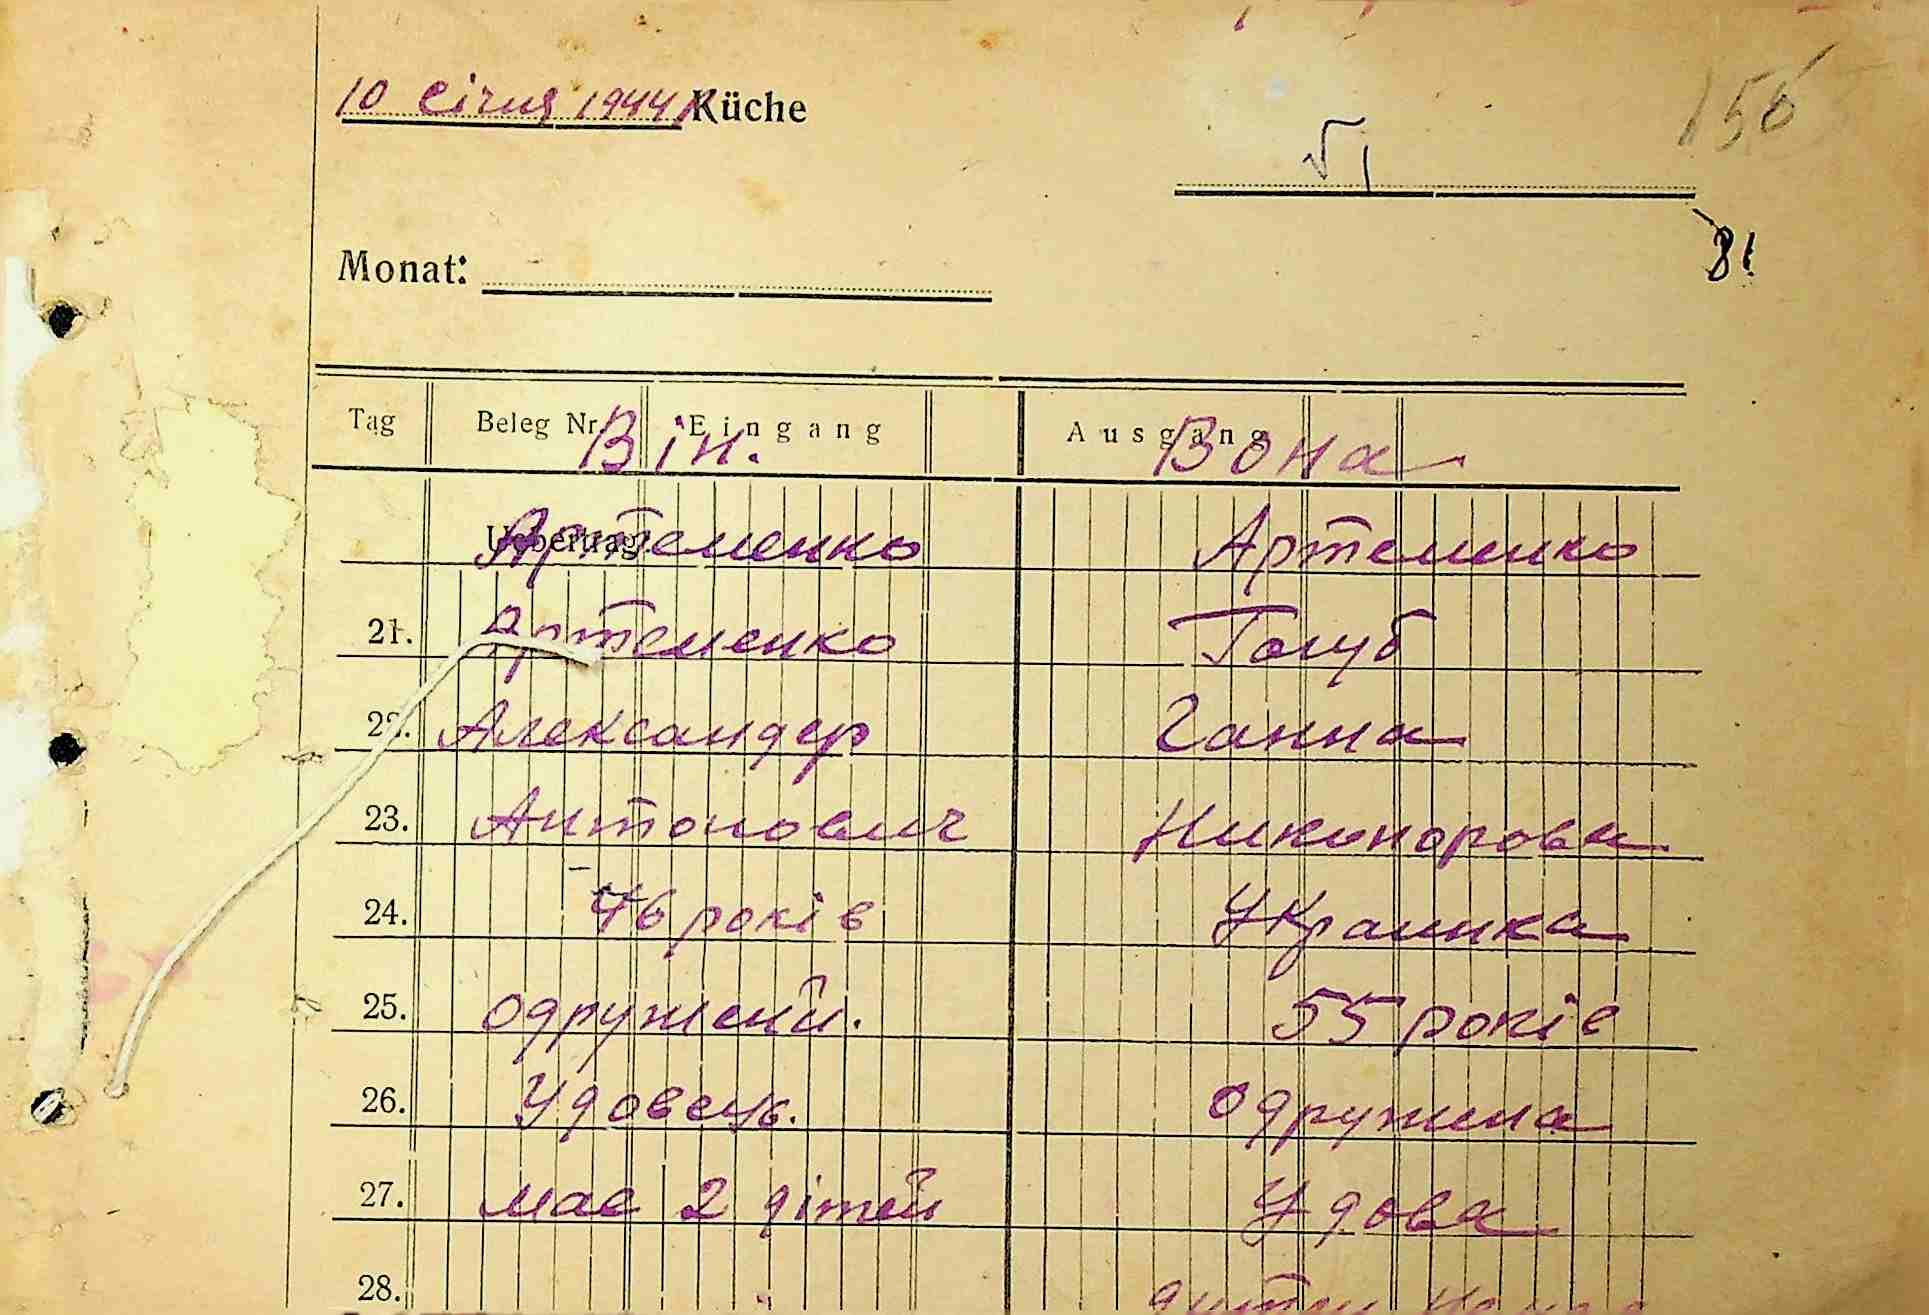 10 січня 1944 Küche
156
VI
81
Monat:
Tag Beleg Nr. Eingang Ausgang
Він. Вона
Uebertrag
Артеменко Артеменко
21. Артеменко Голуб
22. Александер Ганна
23. Антонович Никонорова
24. 46 років Украинка
25. одружений. 55 років
26. Удовець. одружена
27. має 2 дітей Удова
28.